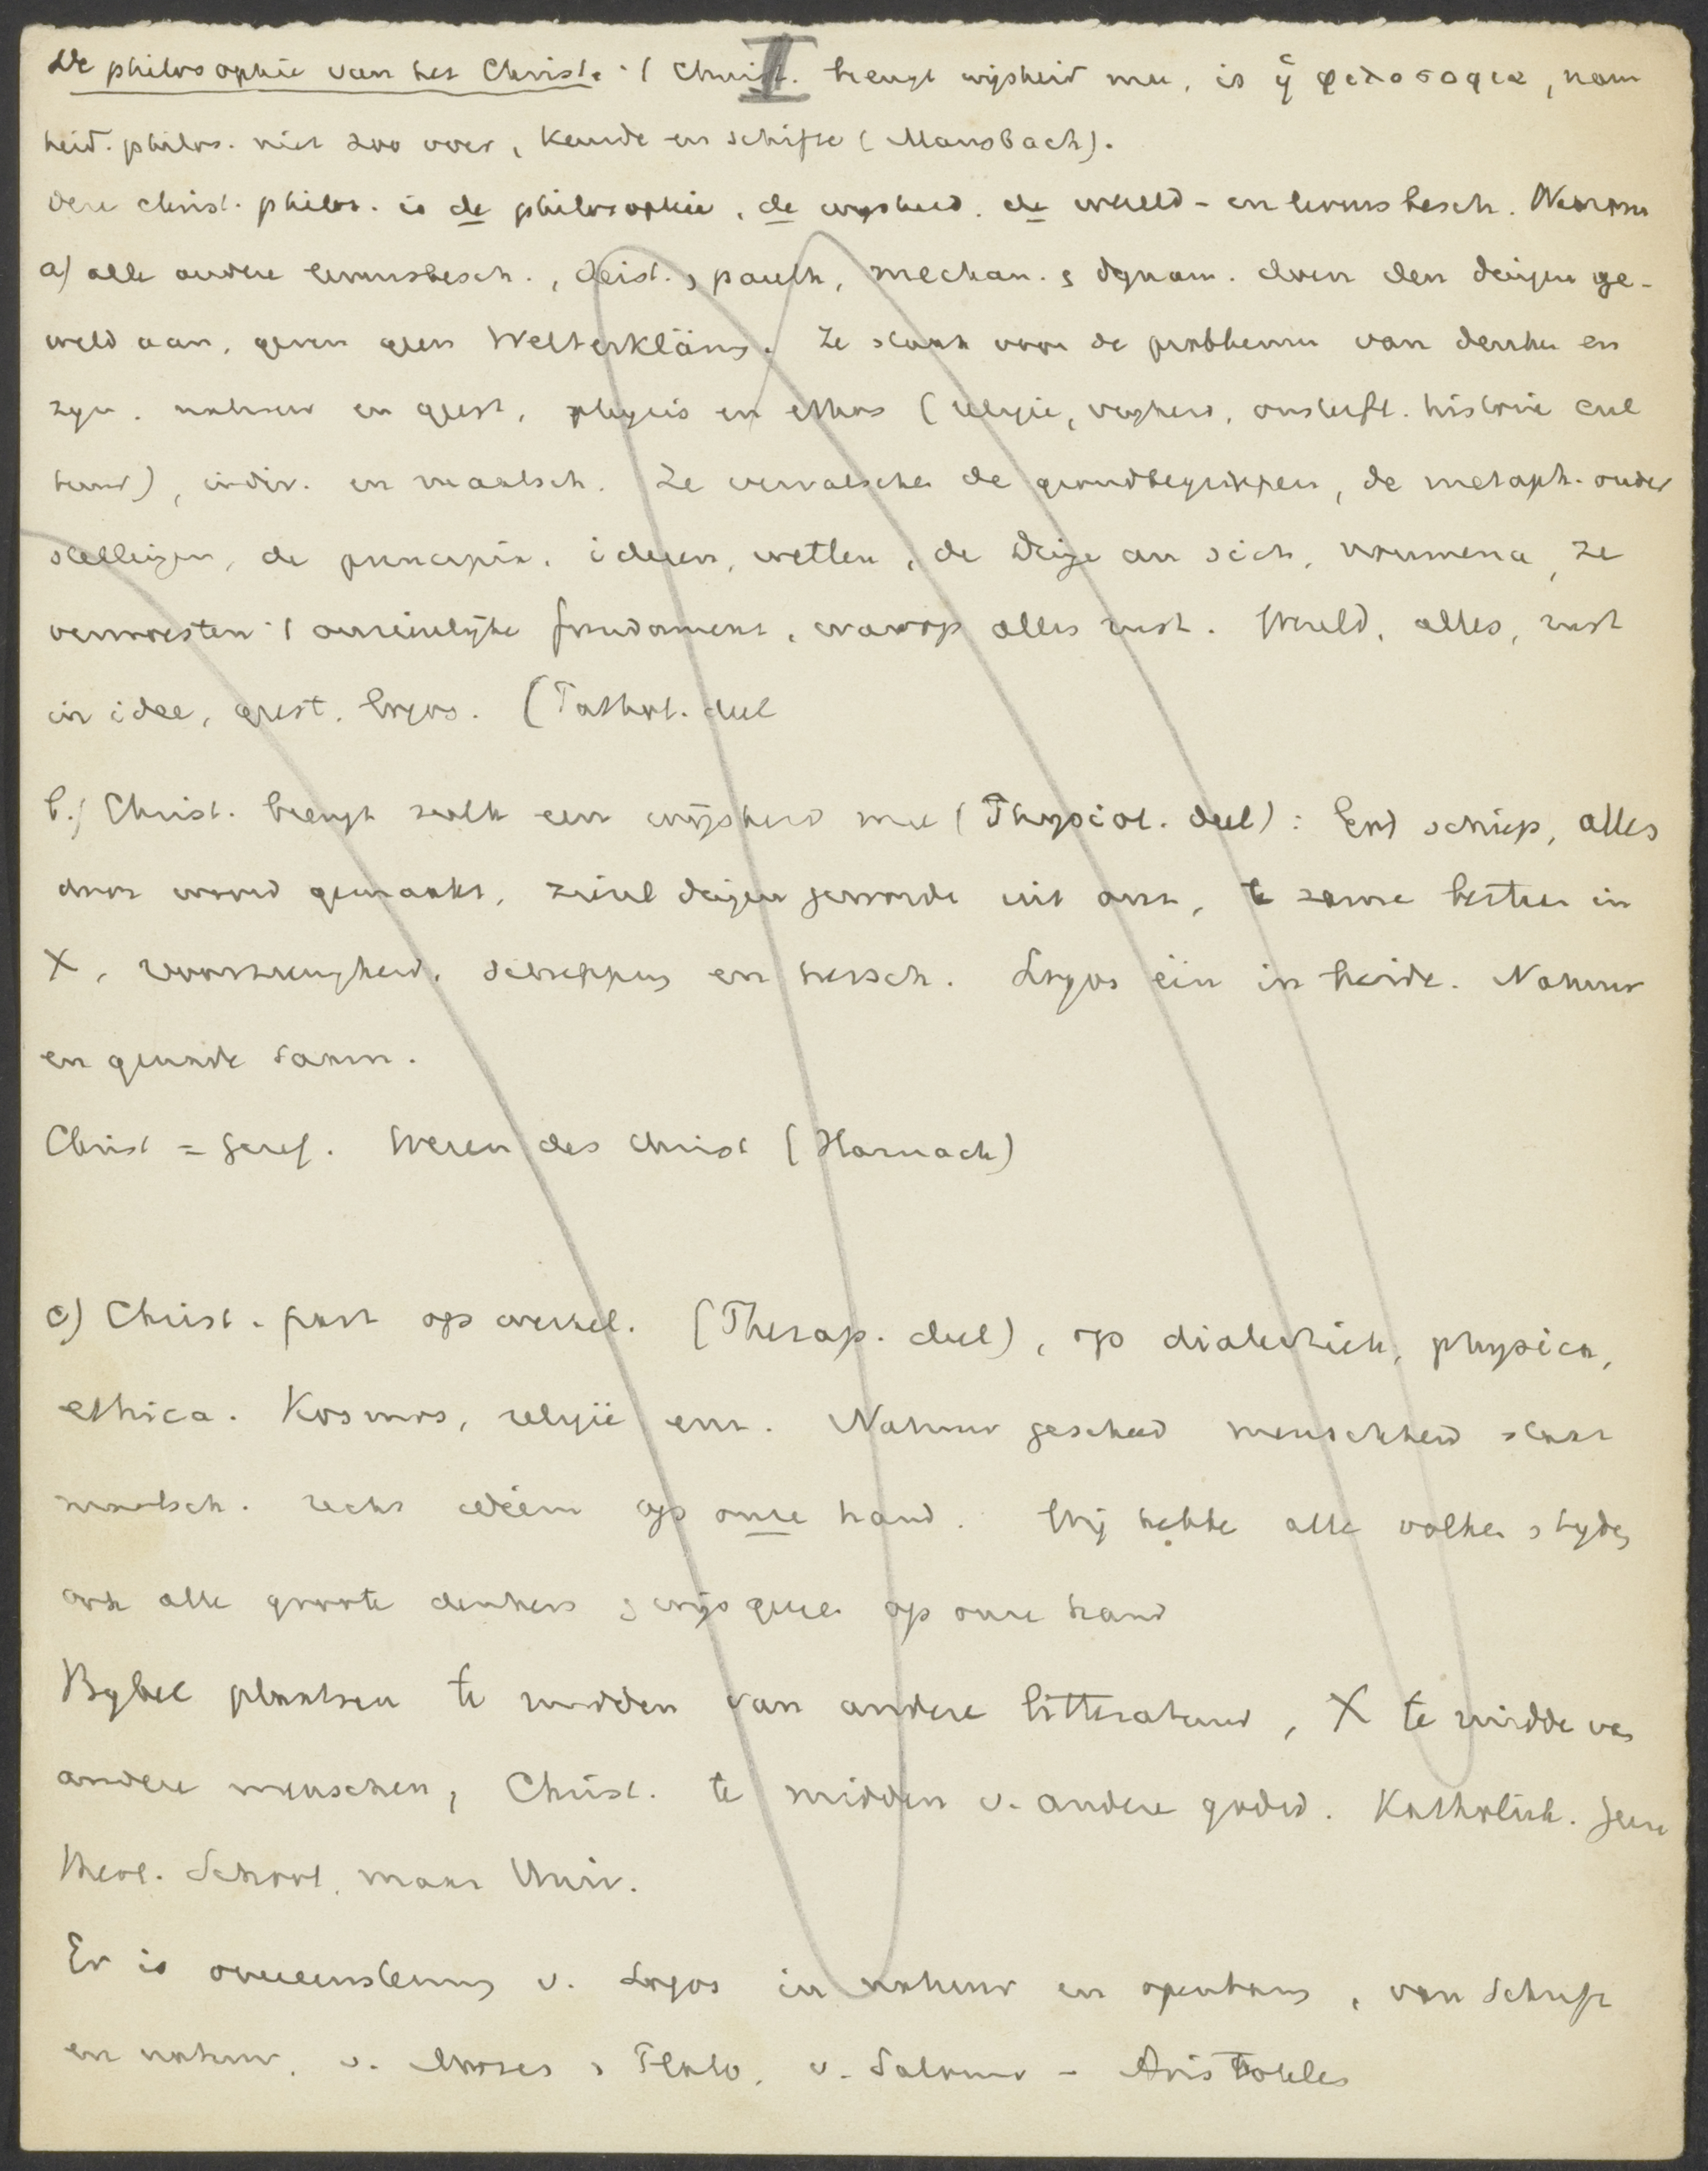 II
De philosophie van het Christ. 't Christ. brengt wijsheid mee, is ἡ φιλοσοφια, nam
heid. philos. niet zoo over, keurde en schifte (Mausbach).
Deze christ. philos. is de philosophie, de wijsheid, de wereld- en levensbesch. Waarom
a) alle andere levensbesch., deist., panth, mechan. , dynam. doen den dingen ge-
weld aan, geven geen Welterklärng. Ze staan voor de problemen van denken en
zijn, natuur en geest, physis en ethos (religie, vrijheid, onsterfl. historie cul
tuur), indiv. en maatsch. Ze vervalschen de grondbegrippen, de metaph. onder
stellingen, de principia, ideeen, wetten, de Dinge an sich, noumena, ze
verwoesten 't onzienlijke fundament, waarop alles rust. Wereld, alles, rust
in idee, geest, logos. (Pathol. deel
b.) Christ. brengt zulk een wijsheid mee (Physiol. deel): God schiep, alles
door woord gemaakt, zienl dingen geworde uit onz, te zame bestaan in
X, voorzienigheid, schepping en hersch. Logos één in beide. Natuur
en genade samen.
Christ = geref. Wezen des Christ (Harnack)
c) Christ. past op werkel. (Therap. deel), op dialectiek, physica,
ethica. Kosmos, religie enz. Natuur geschied menschheid staat
maatsch. recht alléén op onze hand. Wij hebbe alle volken , tijden
ook alle groote denkers , wijsgeeren op onze hand
Bijbel plaatsen te midden van andere litteratuur, X te midde van
andere menschen, Christ. te midden v. andere godsd. Katholiek. Geen
theol. School, maar Univ.
Er is overeenstemmg v. Logos in natuur en openbarng, van Schrift
en natuur, v. Mozes , Plato, v. Salomo - Aristoteles